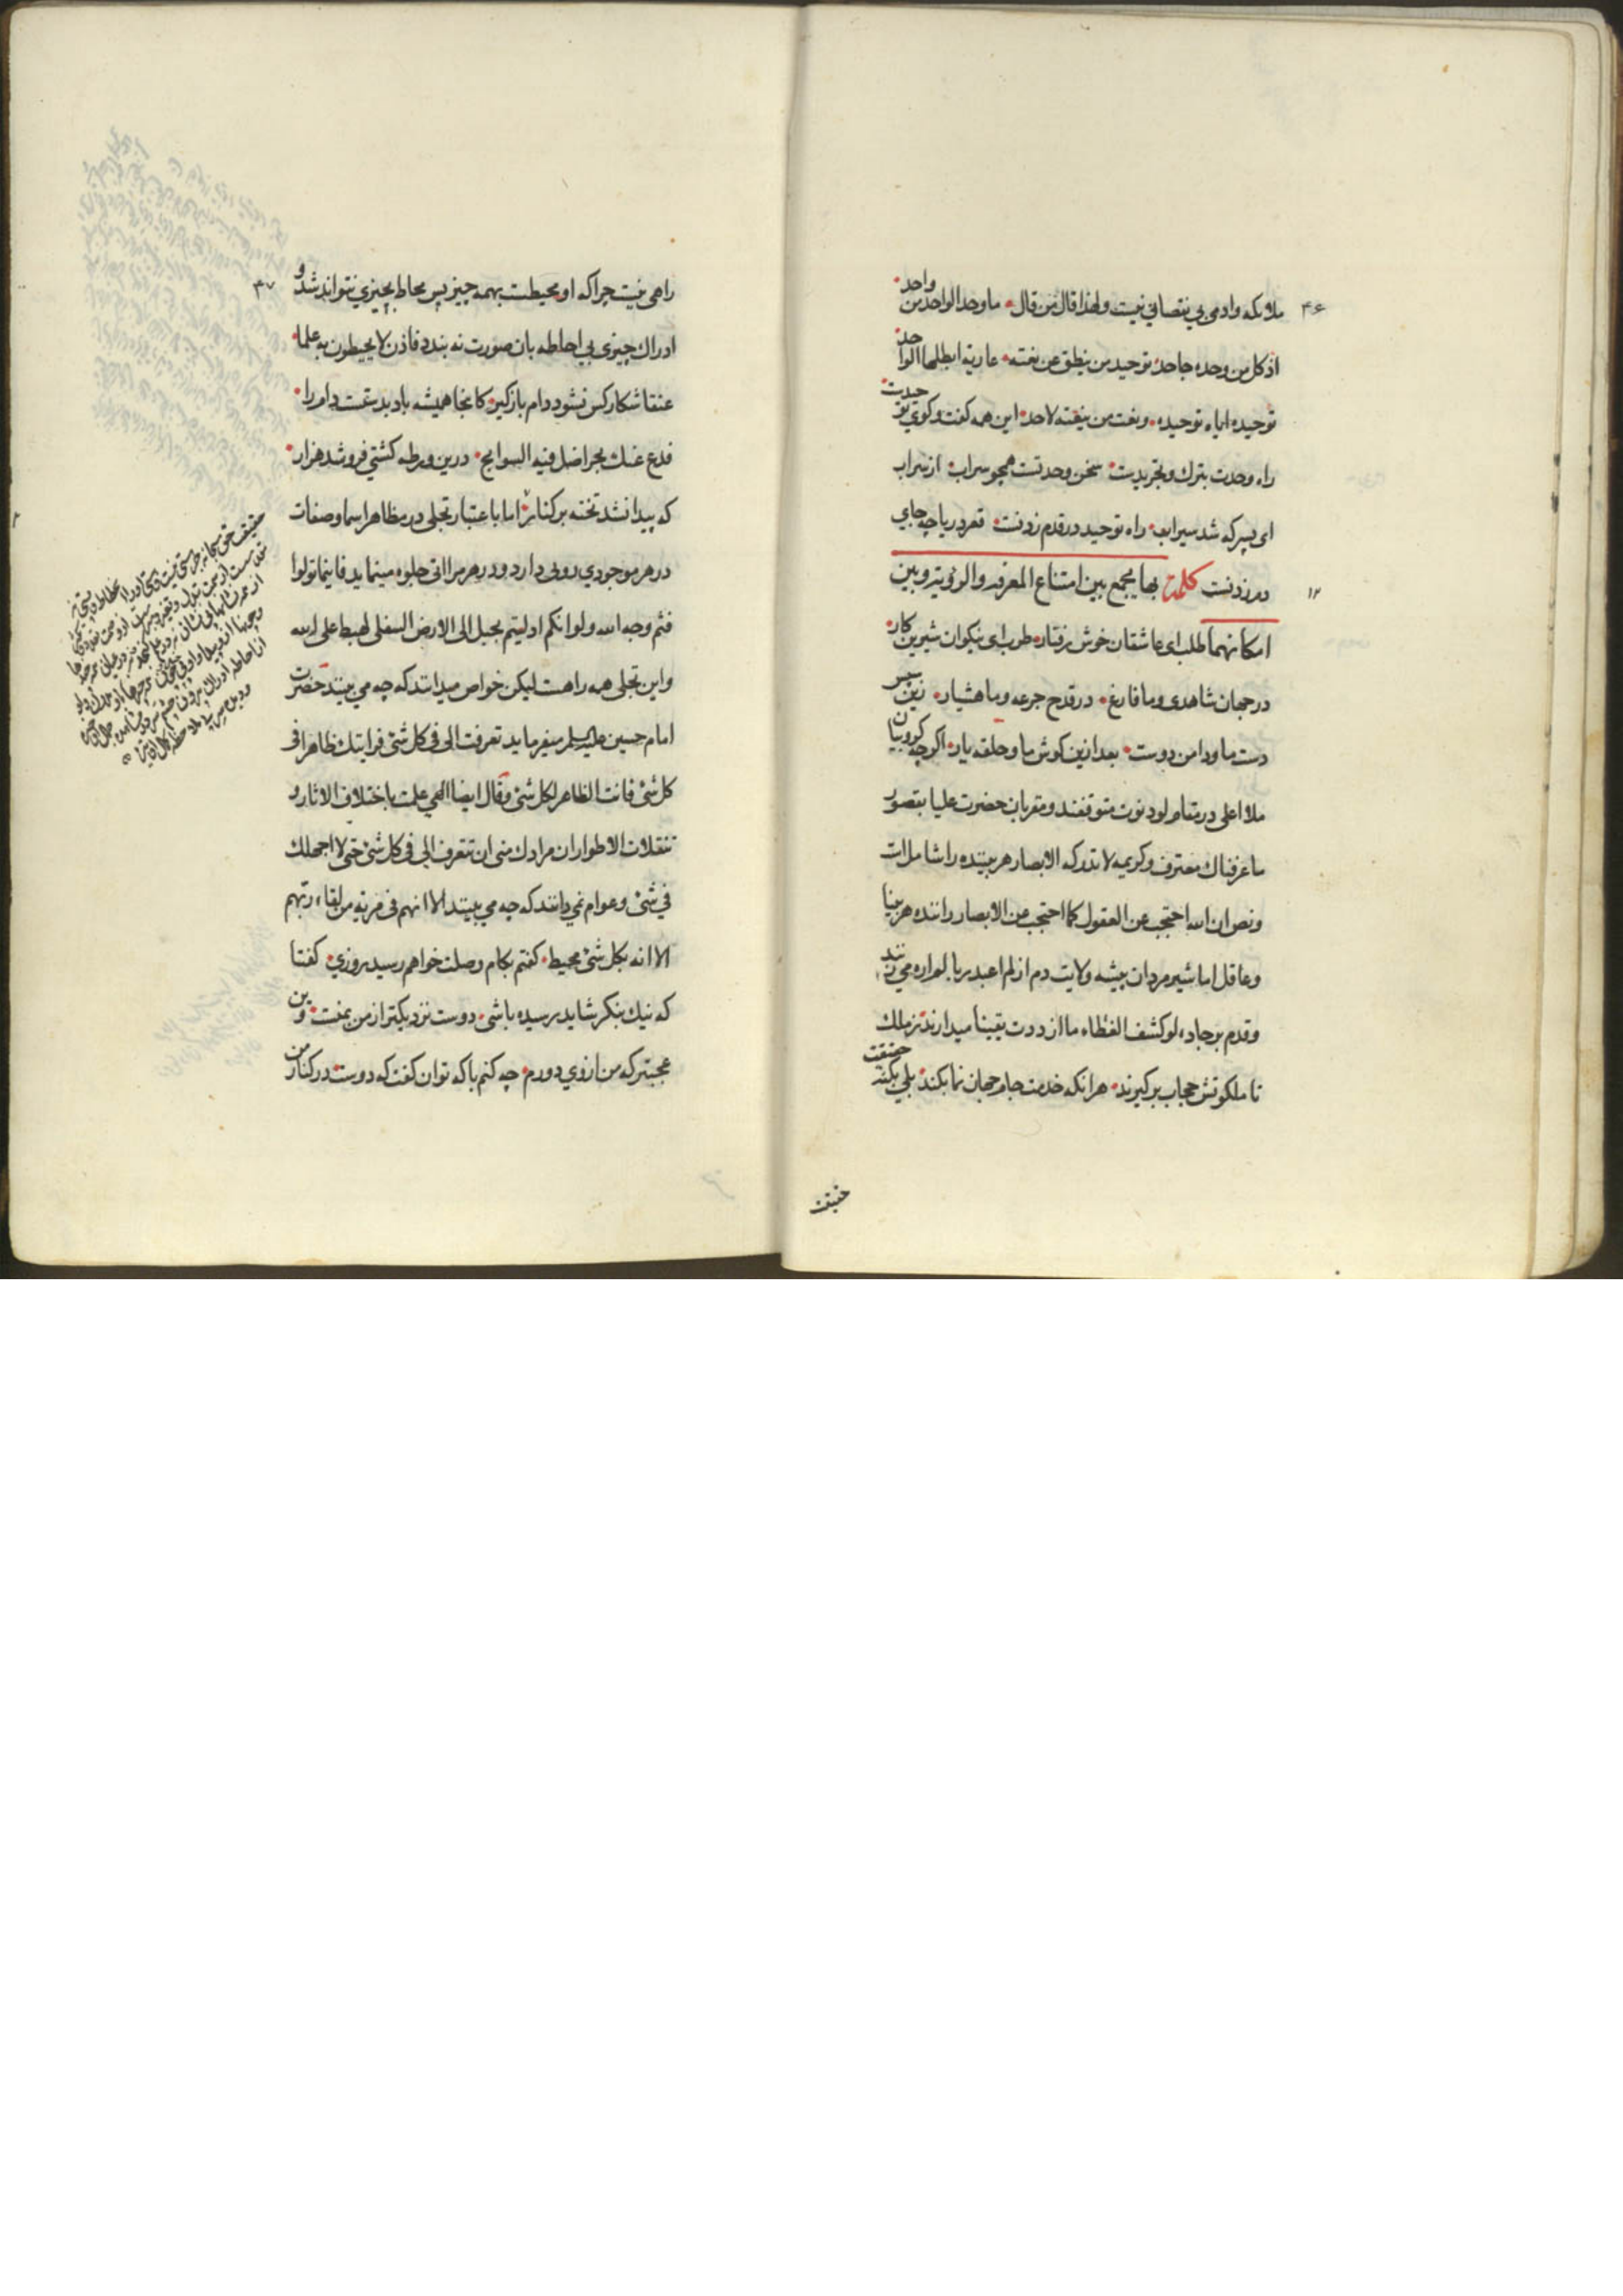 ۴۶
ملائکه وادمی بی نقصانی نیست ولهذا قال من قال ما وحد الواحد من واحد
اذ کل من وحده جاحد توحید من ینطق عن نعته عاریة ابطلها الواحد
توحیده ایاه توحیده ونعت من ینعته لاحد این همه گفت وکوی توحیدست
راه وحدت بترك وتجریدست سخن وحدتست همچو سراب از سراب
ای پسر که شد سیراب راه توحید در قدم زدنست قعر دریا چه جای
۱۲
دم زدنست کلمة بها یجمع بین امتناع المعرفة والرؤیة وبین
امکانهما طلب ای عاشقان خوش رفتار طرب ای نیکوان شیرین کار
در جهان شاهدی وما فارغ در قدح جرعه وما هشیار زین سپس
دست ما ودامن دوست بعد ازین کوش ما وحلقه یار اکرچه کروبیان
ملاء اعلی در مقام لو دنوت متوقفند ومقربان حضرت علیا بقصور
ما عرفناك معترف وکریمه لا تدرکه الابصار هر بیننده را شامل است
ونص ان الله احتجب عن العقول کما احتجب عن الابصار راننده هر بینا
وعاقل اما شیر مردان بیشه ولایت دم از لم اعبد ربا لم اره می زنند
وقدم بر جاده لو کشف الغطاء ما ازددت یقینا میدارند ز ملك
تا ملکوتش حجاب برکیرند هر انکه خدمت جام جهان نما بکند بلی بکنه حقیقت
حقیقت
۴۷
راهی نیست چرا که او محیطست بهمه چیز پس محاط بچیزی نتواند شد و
ادراك چیزی بی احاطه بان صورت نه بندد فاذن لا یحیطون به علما
عنقا شکار کس نشود دام باز کیر کانجا همیشه باد بدستست دام را
فدع عنك بحرا ضل فیه السوابح درین ورطه کشتی فرو شد هزار
که پیدا نشد تخته بر کنار اما باعتبار تجلی در مظاهر اسما وصفات
در هر موجودی رویی دارد ودر هر مرآتی جلوه مینماید فاینما تولوا
فثم وجه الله ولو انکم ادلیتم بحبل الی الارض السفلی لهبط علی الله
واین تجلی همه را هست لیکن خواص میدانند که چه می بینند حضرت
امام حسین علیه السلم میفرماید تعرفت الی فی کل شئ فرایتك ظاهرا فی
کل شئ فانت الظاهر لکل شئ وقال ایضا الهی علمت باختلاف الاثار و
تنقلات الاطوار ان مرادك منی ان تتعرف الی فی کل شئ حتی لا اجهلك
فی شئ وعوام نمی دانند که چه می بینند الا انهم فی مریة من لقاء ربهم
الا انه بکل شئ محیط کفتم بکام وصلت خواهم رسید روزی کفتا
که نیك بنکر شاید رسیده باشی دوست نزدیکتر از من بمنست وین
عجبتر که من ازوی دورم چه کنم با که توان کفت که دوست در کنار من